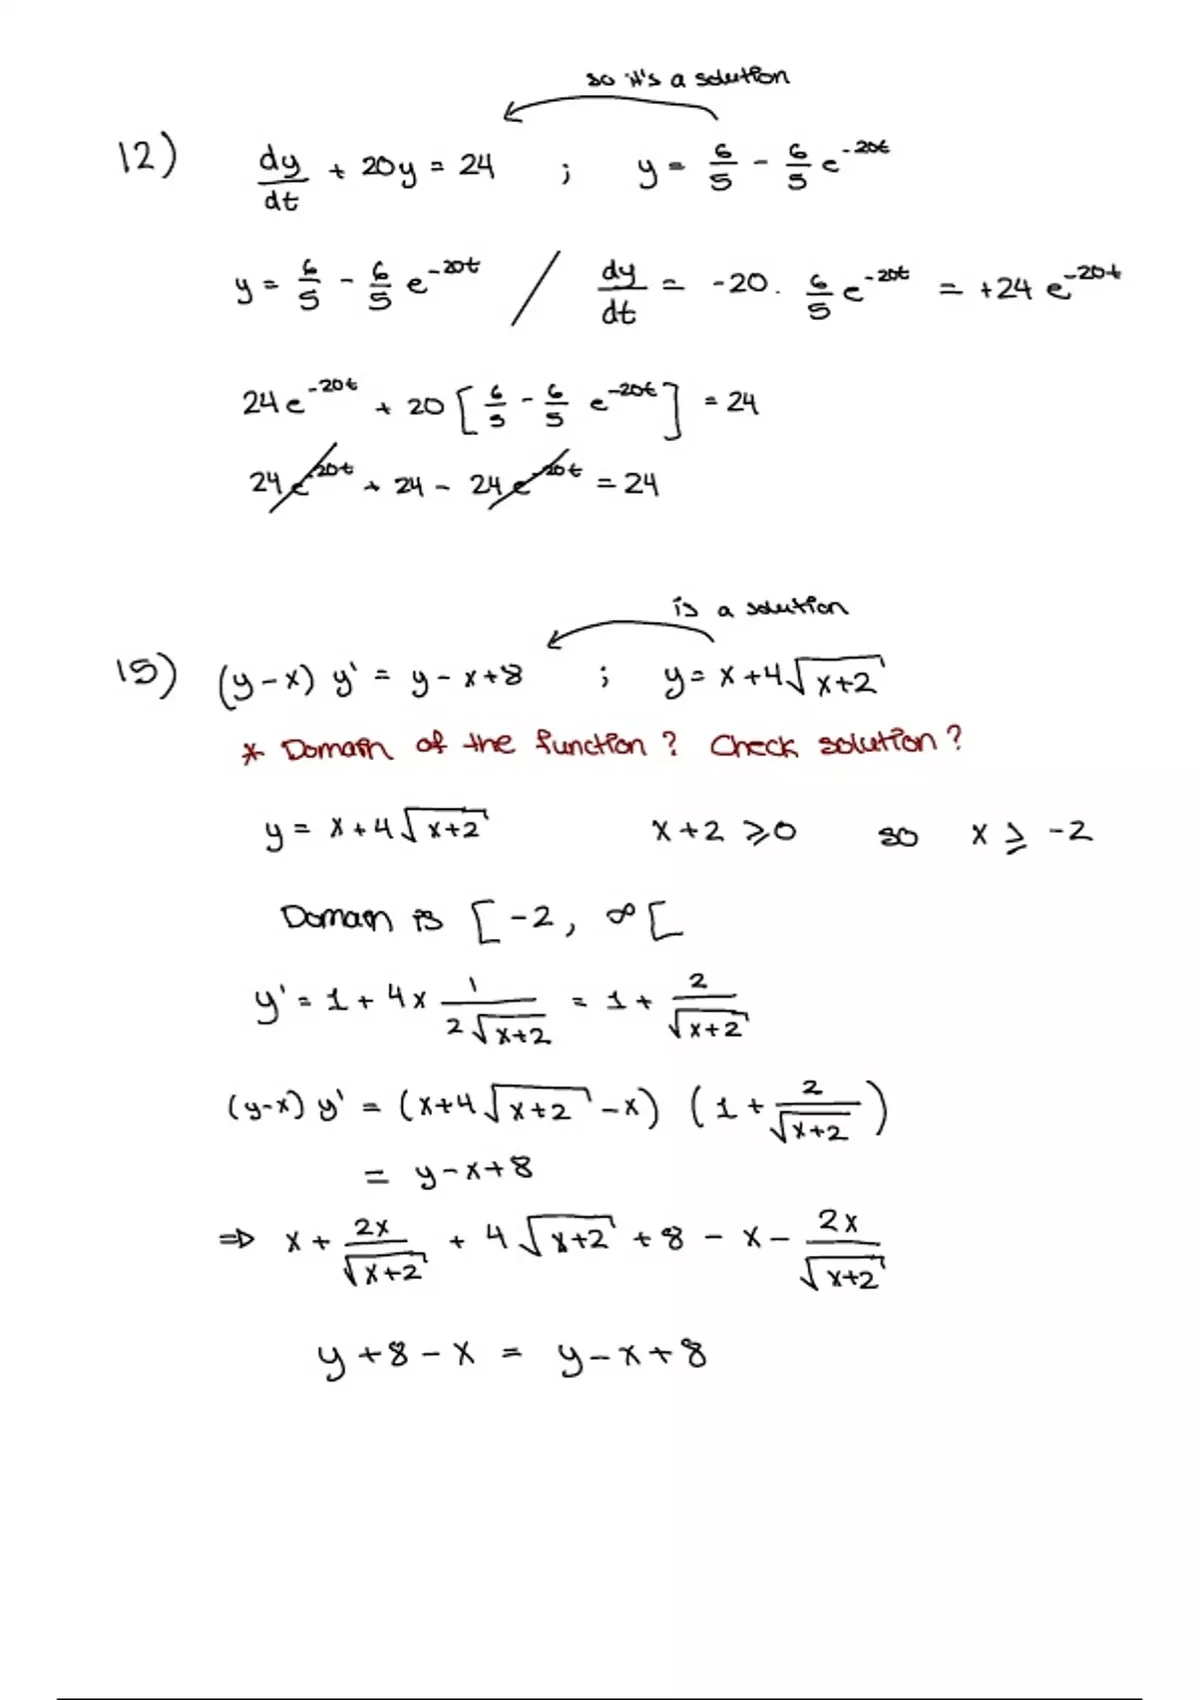 so it's a solution
12) dy/dt + 20y = 24 ; y = 6/5 - 6/5 e^-20t
y = 6/5 - 6/5 e^-20t / dy/dt = -20 . 6/5 e^-20t = +24 e^-20t
24e^-20t + 20 [6/5 - 6/5 e^-20t] = 24
24e^-20t + 24 - 24e^-20t = 24
is a solution
15) (y-x) y' = y - x + 8 ; y = x + 4√(x+2)
* Domain of the function ? Check solution ?
y = x + 4√(x+2) x + 2 ⩾ 0 so x ≥ -2
Domain is [-2, ∞[
y' = 1 + 4 x 1/(2√(x+2)) = 1 + 2/√(x+2)
(y-x) y' = (x+4√(x+2) - x) (1 + 2/√(x+2))
= y - x + 8
⇒ x + 2x/√(x+2) + 4√(x+2) + 8 - x - 2x/√(x+2)
y + 8 - x = y - x + 8